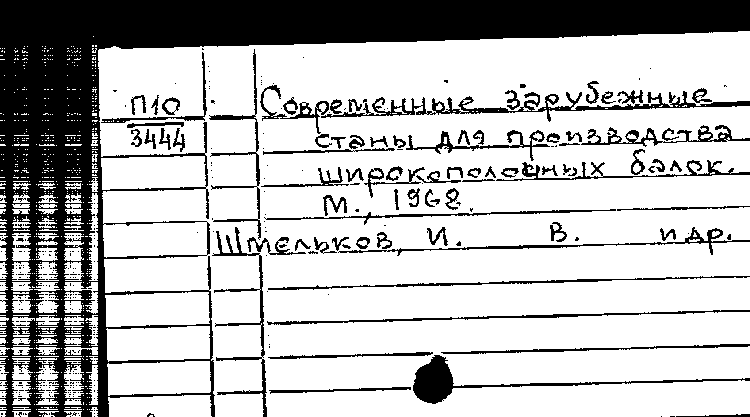 П10 Современные зарубежные
3444 станы для производства
широкополочных балок.
М., 1968.
Шмельков, И. В. и др.